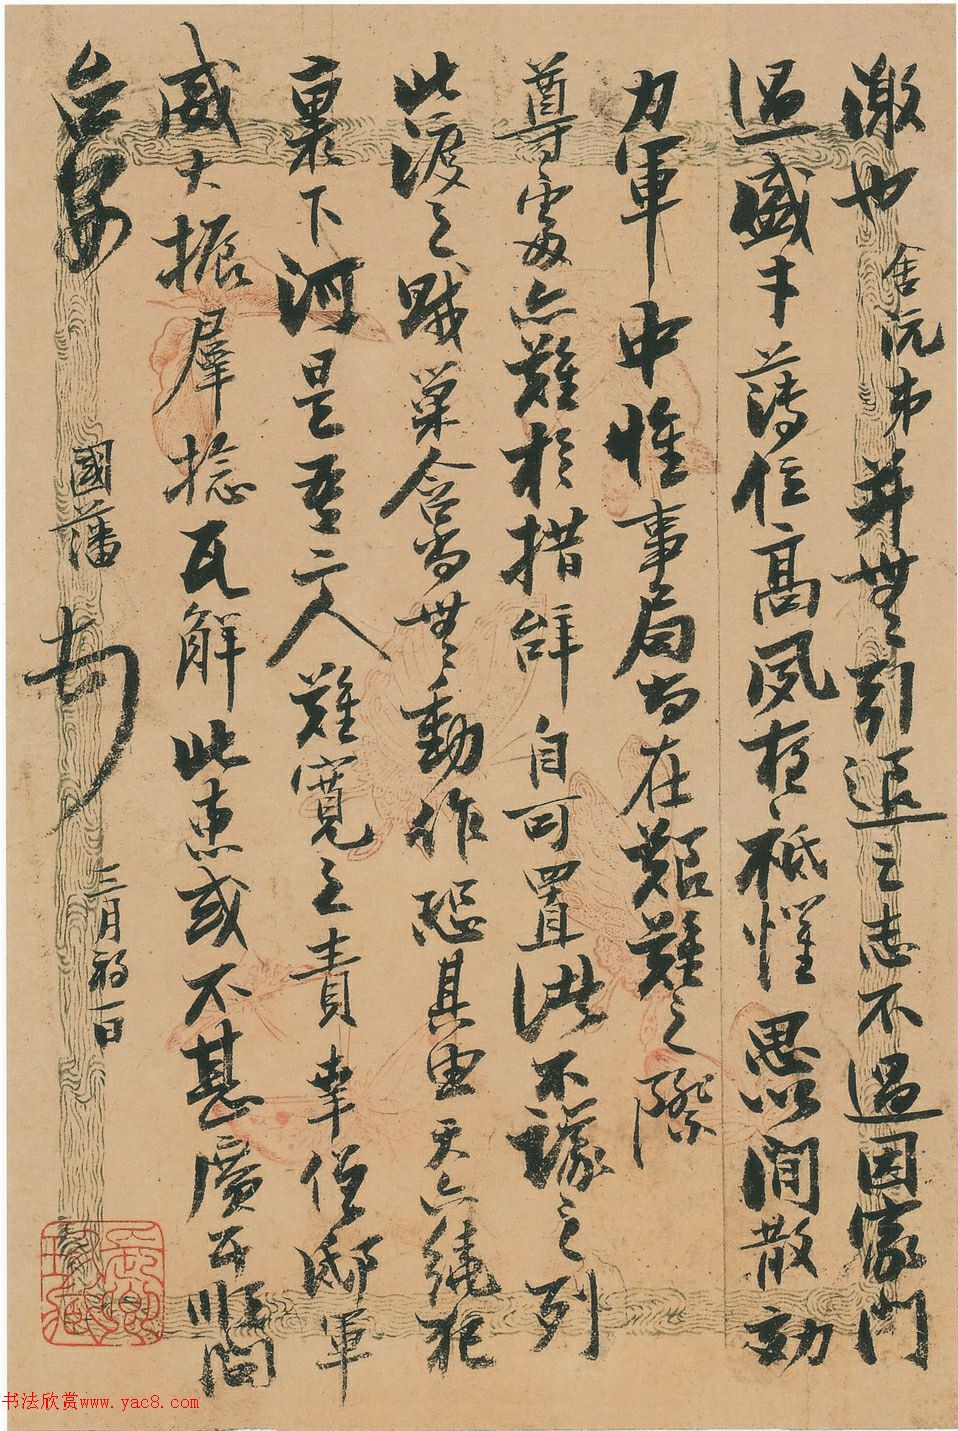 激也舍沅弟並無引退之志不過因家門
過盛才薄位高夙夜祗懼思以閒散効
力軍中惟事局尚在艱難之際
尊處亦難於措辞自可置諸不議之列
此渡之賊巢含尚無動作恐其由天六繞犯
裏下河是吾二人難寬之責幸僧邸軍
威大振羣捻瓦解此患或不甚廣耳順問
台安
國藩 頓首
三月初一日
书法欣赏www.yac8.com